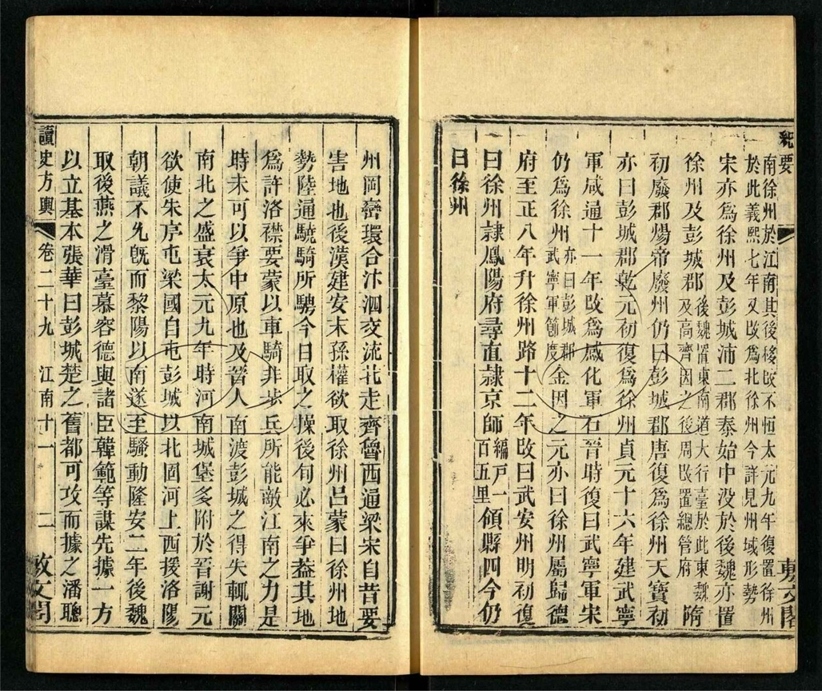 紀要
南徐州於江南其後移改不恒太元九年復置徐州
於此義熙七年又改爲北徐州今詳見州域形勢
宋亦爲徐州及彭城沛二郡泰始中没於後魏亦置
徐州及彭城郡後魏置東南道大行臺於此東魏及高齊因之後周改置總管府隋
初廢郡煬帝廢州仍曰彭城郡唐復爲徐州天寶初
亦曰彭城郡乾元初復爲徐州貞元十六年建武寧
軍咸通十一年改爲感化軍石晉時復曰武寧軍宋
仍爲徐州亦曰彭城郡武寧軍節度金因之元亦曰徐州屬歸德
府至正八年升徐州路十二年改曰武安州明初復
曰徐州隸鳳陽府尋直隸京師編戸一百五里領縣四今仍
曰徐州
州岡巒環合汴泗交流北走齊魯西通梁宋自昔要
害地也後漢建安末孫權欲取徐州吕蒙曰徐州地
勢陸通驍騎所騁今日取之操後旬必來爭蓋其地
爲許洛襟要蒙以車騎非步兵所能敵江南之力是
時未可以爭中原也及晉人南渡彭城之得失輒關
南北之盛衰太元九年時河南城堡多附於晉謝元
欲使朱序屯梁國自屯彭城以北固河上西援洛陽
朝議不允旣而黎陽以南遂至騷動隆安二年後魏
取後燕之滑臺慕容德與諸臣韓範等謀先據一方
以立基本張華曰彭城楚之舊都可攻而據之潘聰
讀史方輿 卷二十九 江南十一 二 敷文閣